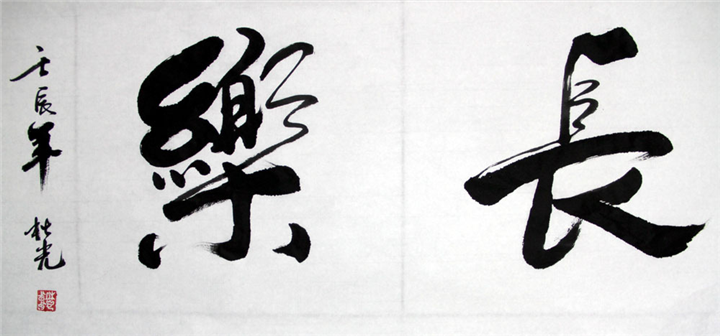 長樂
壬辰年 光